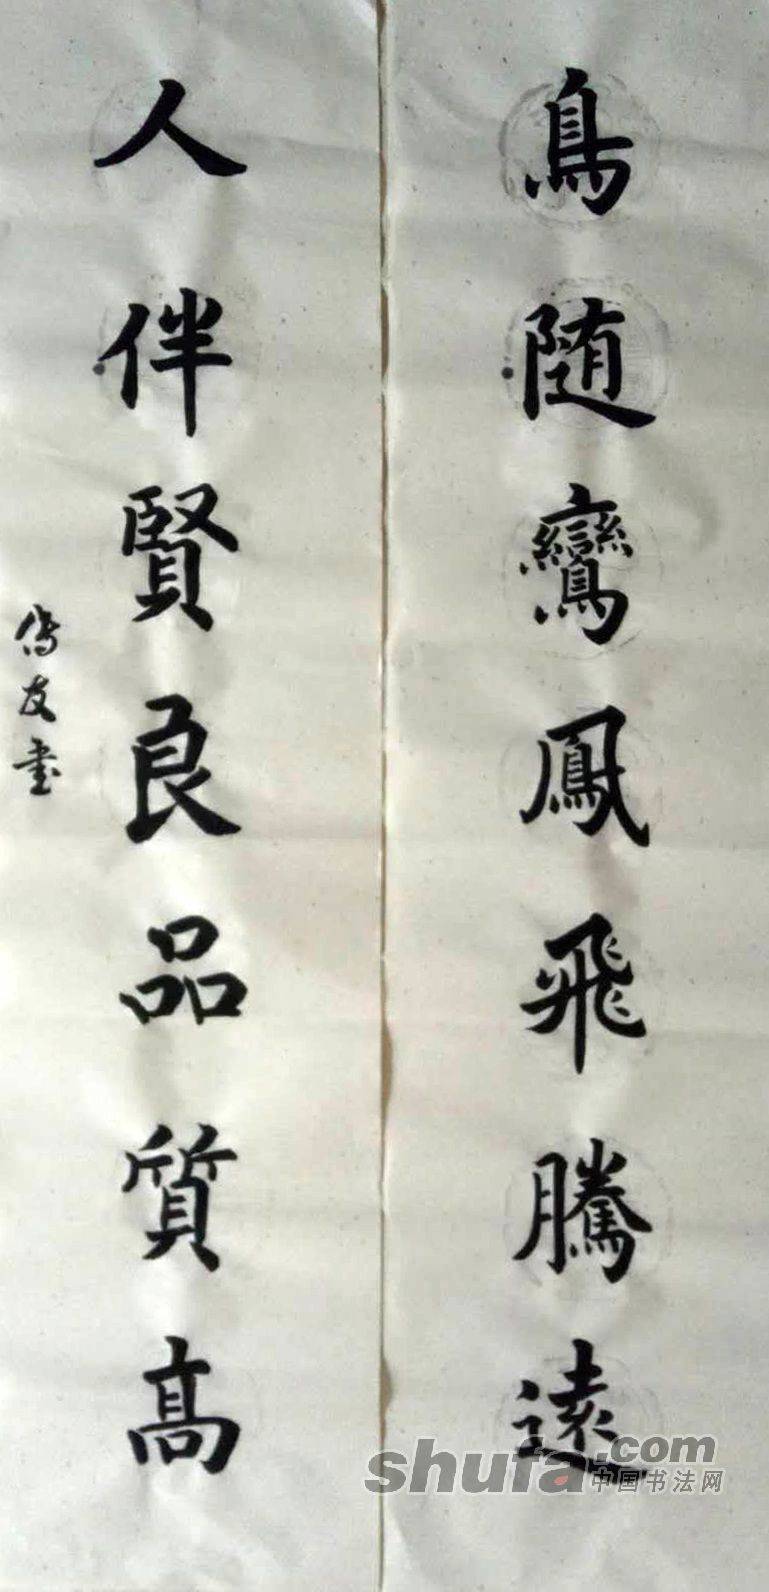 鳥随鸞鳳飛騰遠
人伴賢良品質高
傳友書
shufa.com
中国书法网